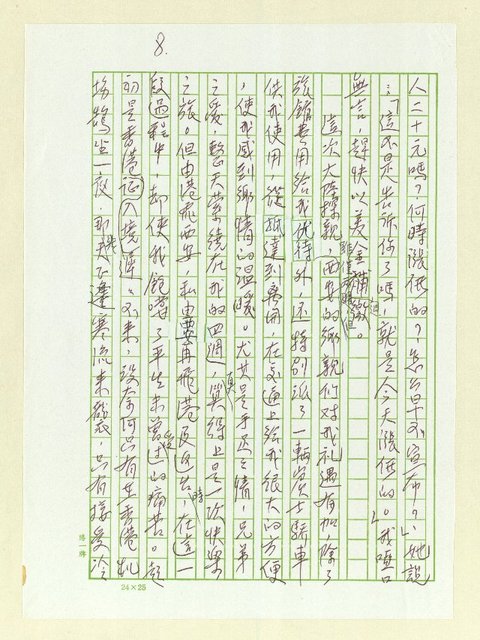 8.
人二十元嗎?何時漲價的?怎么早不宣布?」她說
:「這不是告訴你了嗎,就是今天漲價的。」我啞口
無言,趕快以美金補繳。
這次大陸探親,西安的鄉親們對我禮遇有加,除了
旅館費用給我優待外,還特別派了一輛賓士轎車
供我使用,從抵達到離開,在交通上給我很大的方便
,使我感到鄉情的溫暖。尤其是手足之情,兄弟
之愛,整天縈繞在我的四週,真算得上是一次快樂
之旅。但由港飛西安,和由西安再飛港及返台時,在這一
段過程中,却使我飽嚐了平生未嘗受過的痛苦。起
初是香港證(入境證)遲遲不來,沒奈何只有在香港机
場鵠坐一夜,那晚正逢寒流來襲,只有接受冷
24×25